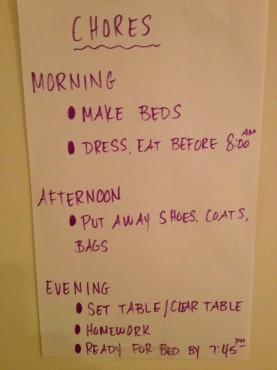 CHORES
MORNING
• MAKE BEDS
• DRESS, EAT BEFORE 8:00 AM
AFTERNOON
• PUT AWAY SHOES, COATS,
BAGS
EVENING
• SET TABLE/CLEAR TABLE
• HOMEWORK
• READY FOR BED BY 7:45 PM